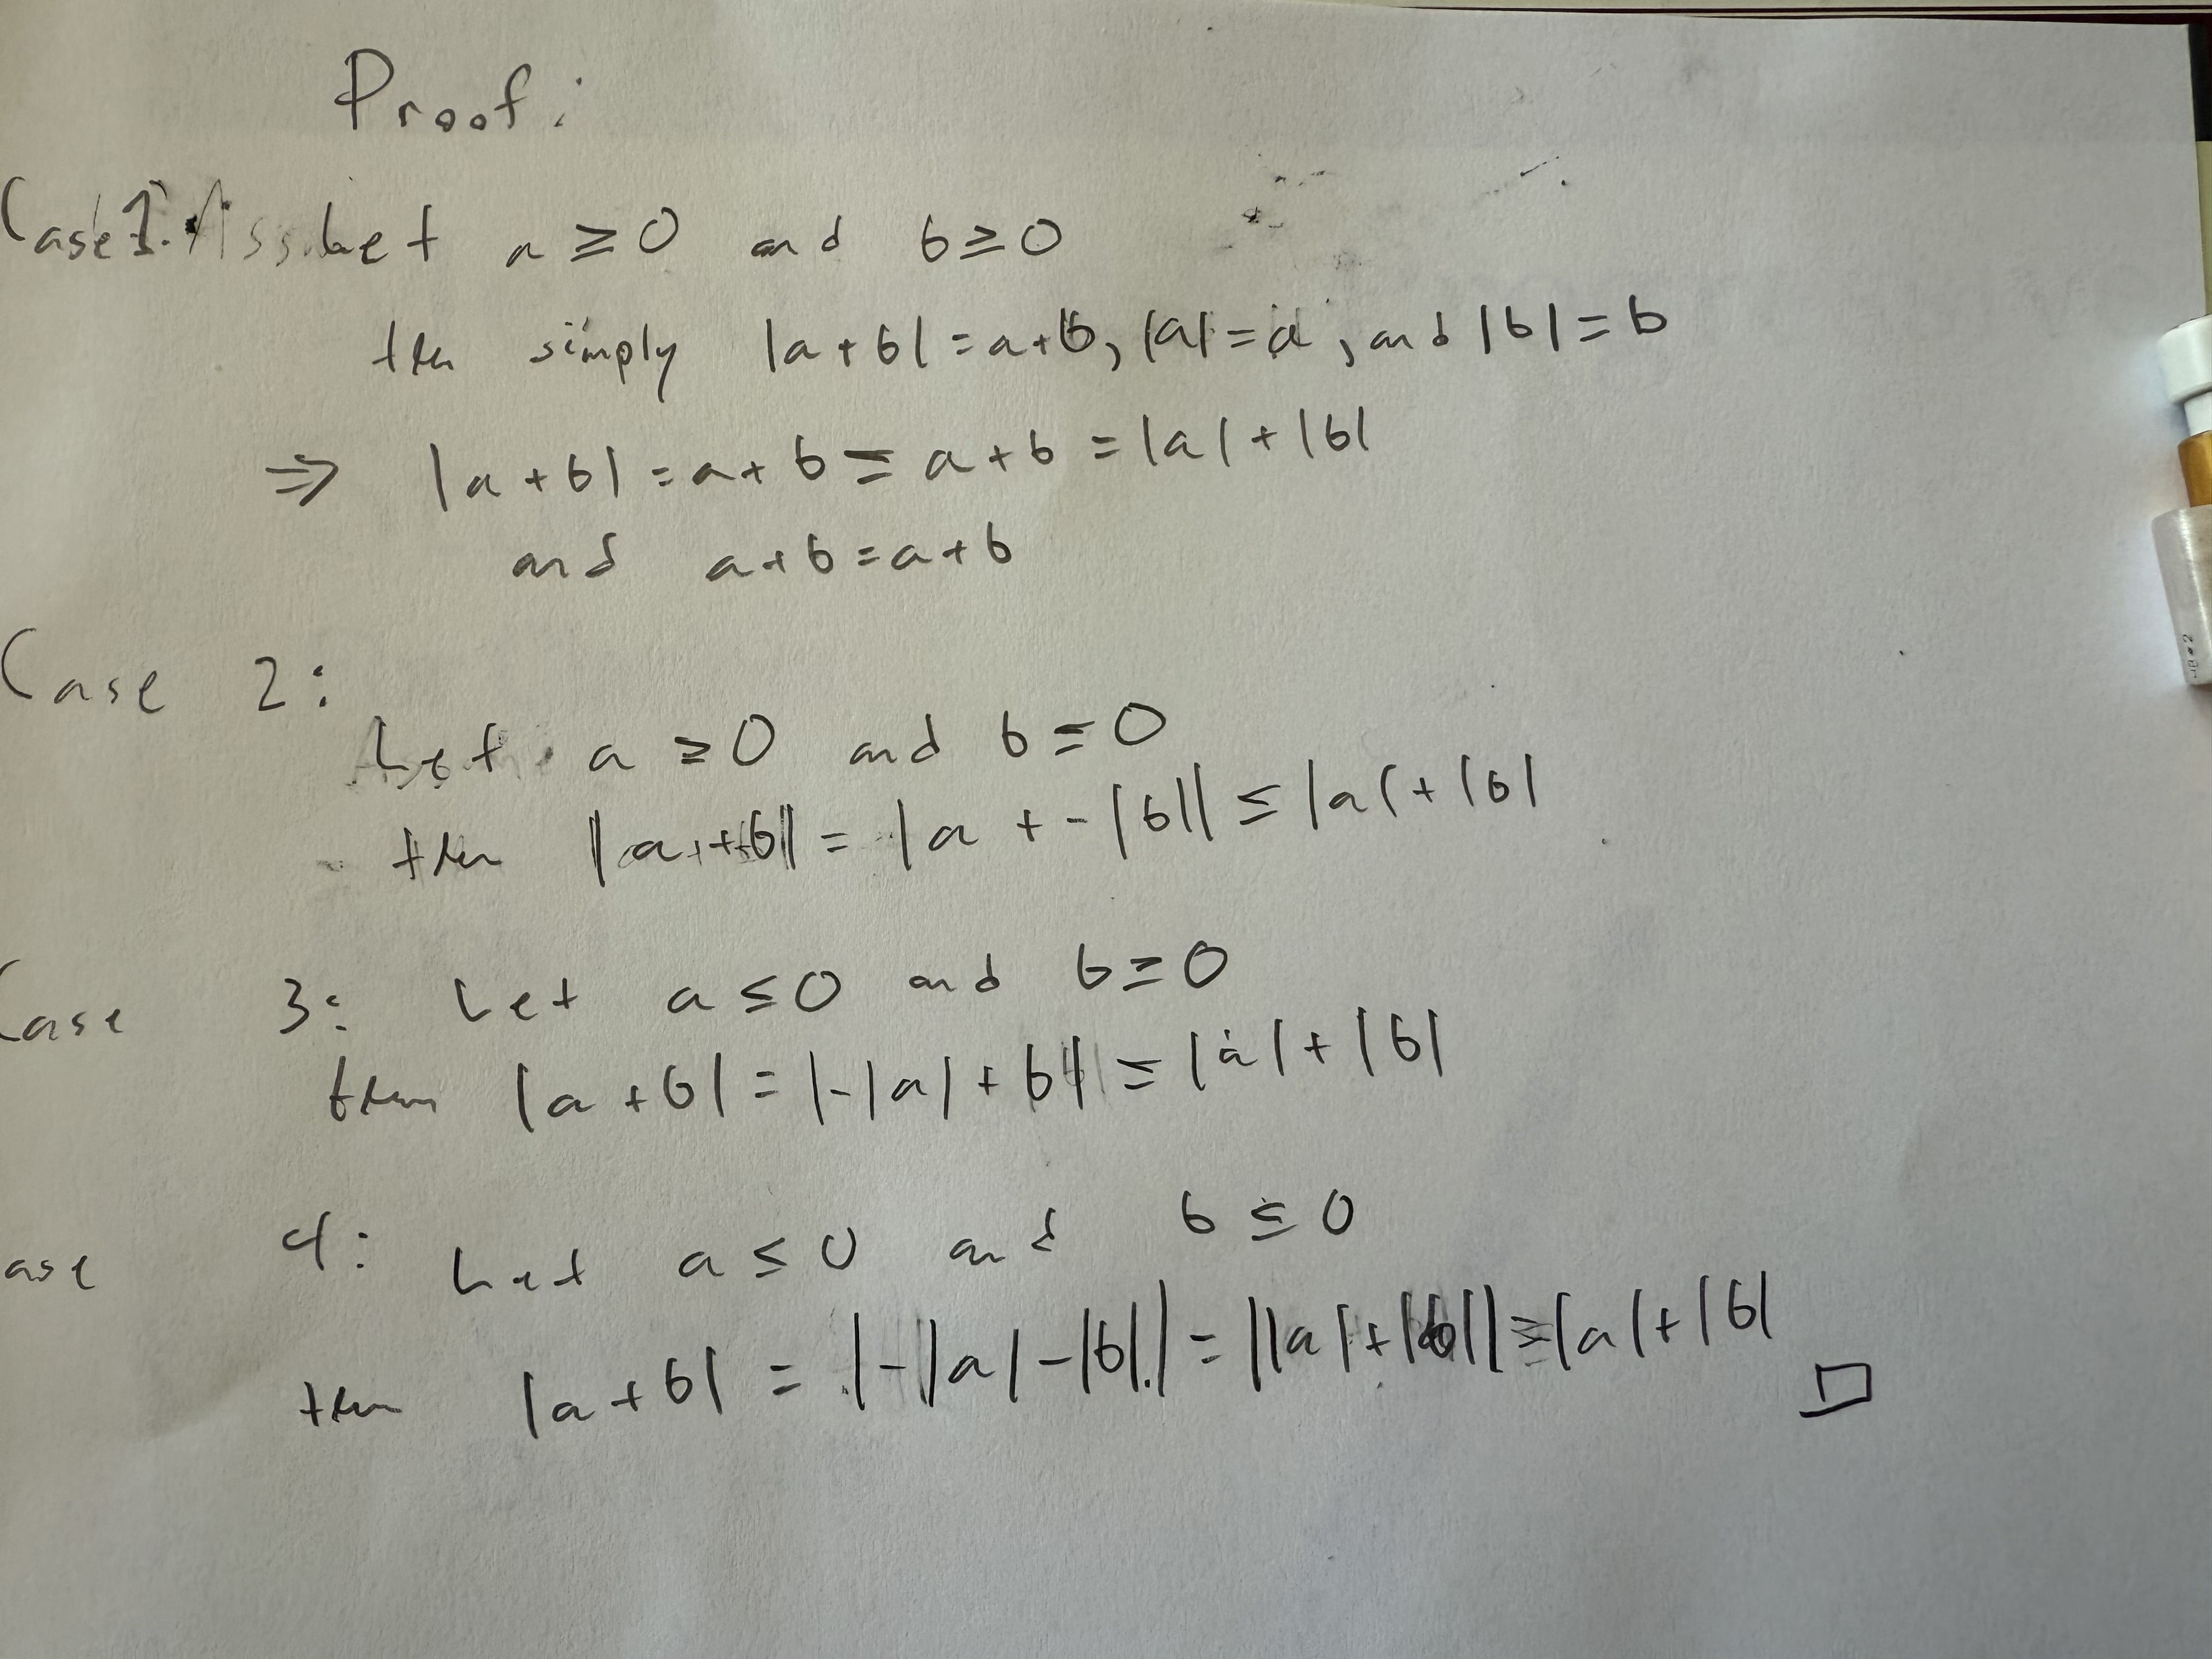 Proof:
Case 1. Let a ≥ 0 and b ≥ 0
then simply |a+b| = a+b, |a| = a, and |b| = b
⇒ |a+b| = a+b ≤ a+b = |a|+|b|
and a+b = a+b
Case 2:
Let a ≥ 0 and b ≤ 0
then |a+b| = |a + -|b|| ≤ |a|+|b|
Case 3: Let a ≤ 0 and b ≥ 0
then |a+b| = |-|a|+b| ≤ |a|+|b|
ase 4: Let a ≤ 0 and b ≤ 0
then |a+b| = |-|a|-|b|| = ||a|+|b|| = |a|+|b|
□